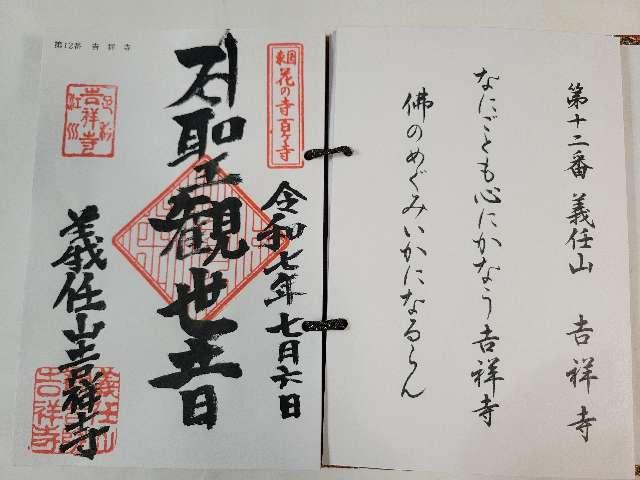 第十二番 義任山 吉祥寺
なにごとも心にかなう吉祥寺
佛のめぐみいかになるらん
東国花の寺百ヶ寺
令和七年七月六日
聖観世音
義任山吉祥寺
第12番 吉祥寺
吉祥寺
義任山
吉祥寺